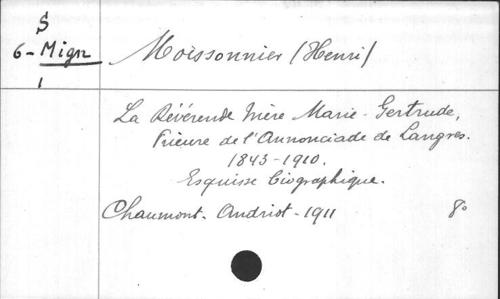 S
6 - Mign
1
Moissonnier (Henri)
La Révérende Mère Marie-Gertrude,
Prieure de l'Annonciade de Langres.
1843-1910.
Esquisse biographique.
Chaumont. Andriot - 1911 8°